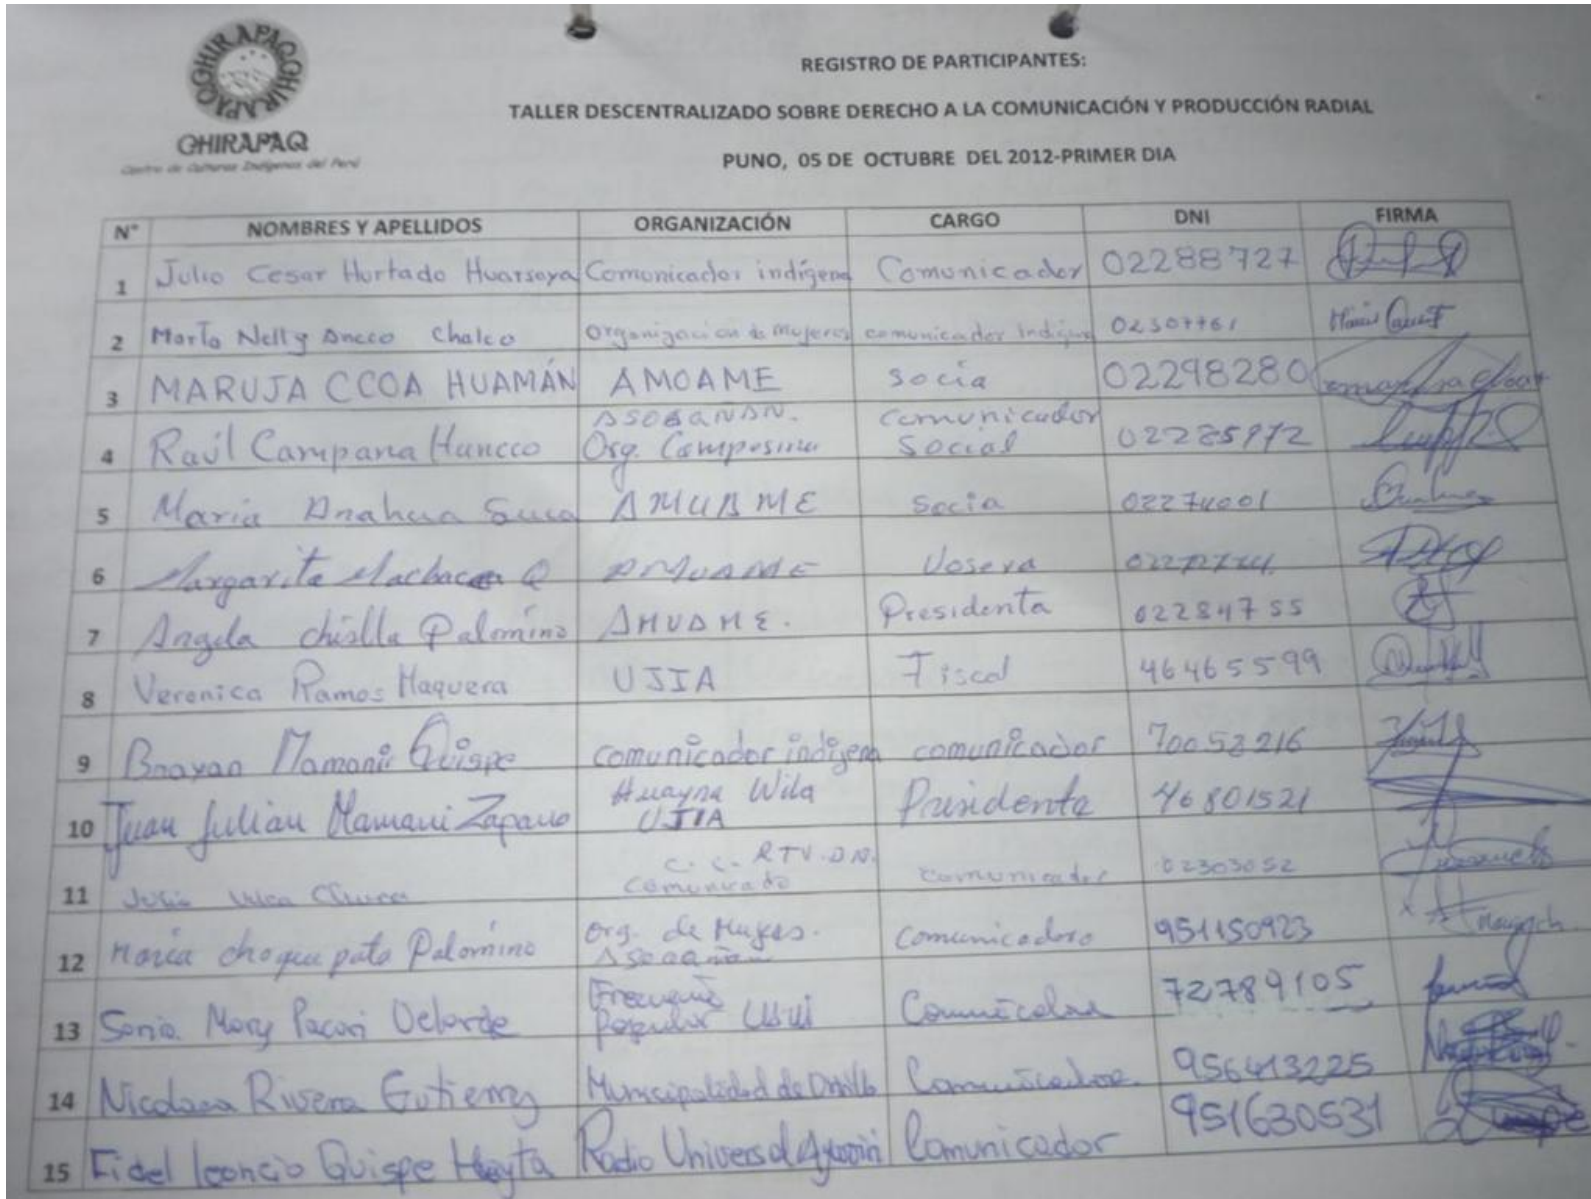 QHIRAPAQ QHIRAPAQ
QHIRAPAQ
Centro de Culturas Indígenas del Perú
REGISTRO DE PARTICIPANTES:
TALLER DESCENTRALIZADO SOBRE DERECHO A LA COMUNICACIÓN Y PRODUCCIÓN RADIAL
PUNO, 05 DE OCTUBRE DEL 2012-PRIMER DIA
N° NOMBRES Y APELLIDOS ORGANIZACIÓN CARGO DNI FIRMA
1 Julio Cesar Hurtado Huarsaya Comunicador indígena Comunicador 02288727
2 Marta Nelly Ancco Chalco Organizacion de Mujeres comunicador Indígena 02307761
3 MARUJA CCOA HUAMÁN AMOAME Socia 02298280
4 Raúl Campana Huncco ASOGAÑAN. Org. Campesina Comunicador Social 02285972
5 Maria Anahua Suca AMUAME Socia 02274001
6 Margarita Machaca Q AMUAME Vosera
7 Angela chislla Palomino AMUAME. Presidenta 02284755
8 Veronica Ramos Maquera UJIA Fiscal 46465599
9 Brayan Mamani Quispe comunicador indígena comunicador 70052216
10 Juan Julian Mamani Zapana Huayna Wila UJIA Presidenta 46801521
11 C. C. RTV. comunicado comunicador 02303052
12 Maria choquepata Palomino Org. de Mujes. Comunicadora 951150923
13 Sonia Mery Pacori Velarde Popular 72789105
14 Nicolasa Rivera Gutierrez Municipalidad de Comunicadora. 956413225
15 Fidel leoncio Quispe Hayta Radio Universal Comunicador 951630531